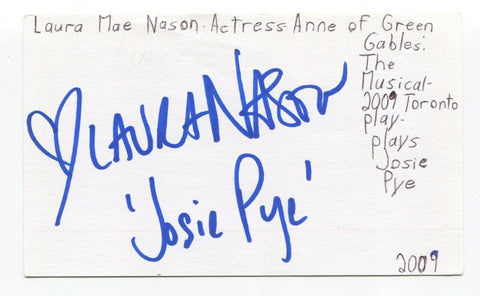 Laura Mae Nason-Actress-Anne of Green
Gables:
The
Musical-
2009 Toronto
play-
plays
Josie
Pye
LAURA NASON
'Josie Pye'
2009